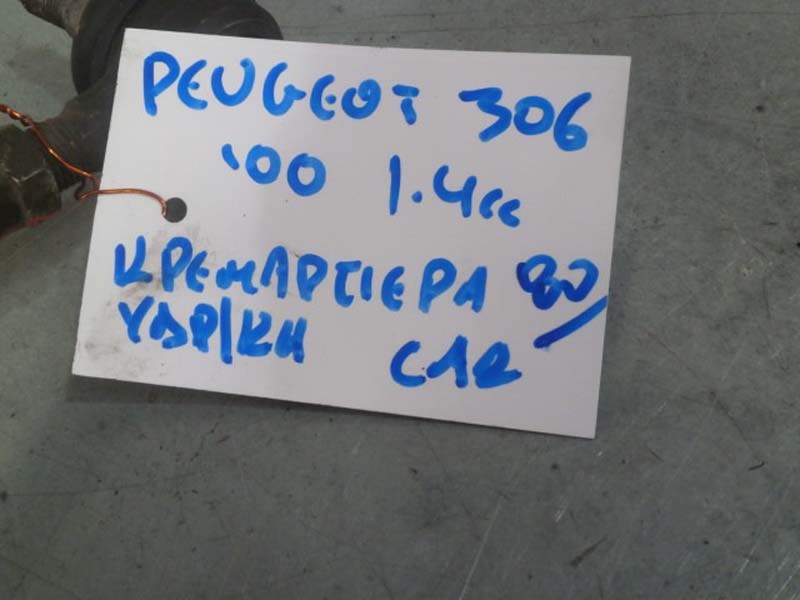 PEUGEOT 306
'00 1.4cc
ΚΡΕΜΑΡΓΙΕΡΑ 80/
ΥΔΡ/ΚΗ C12